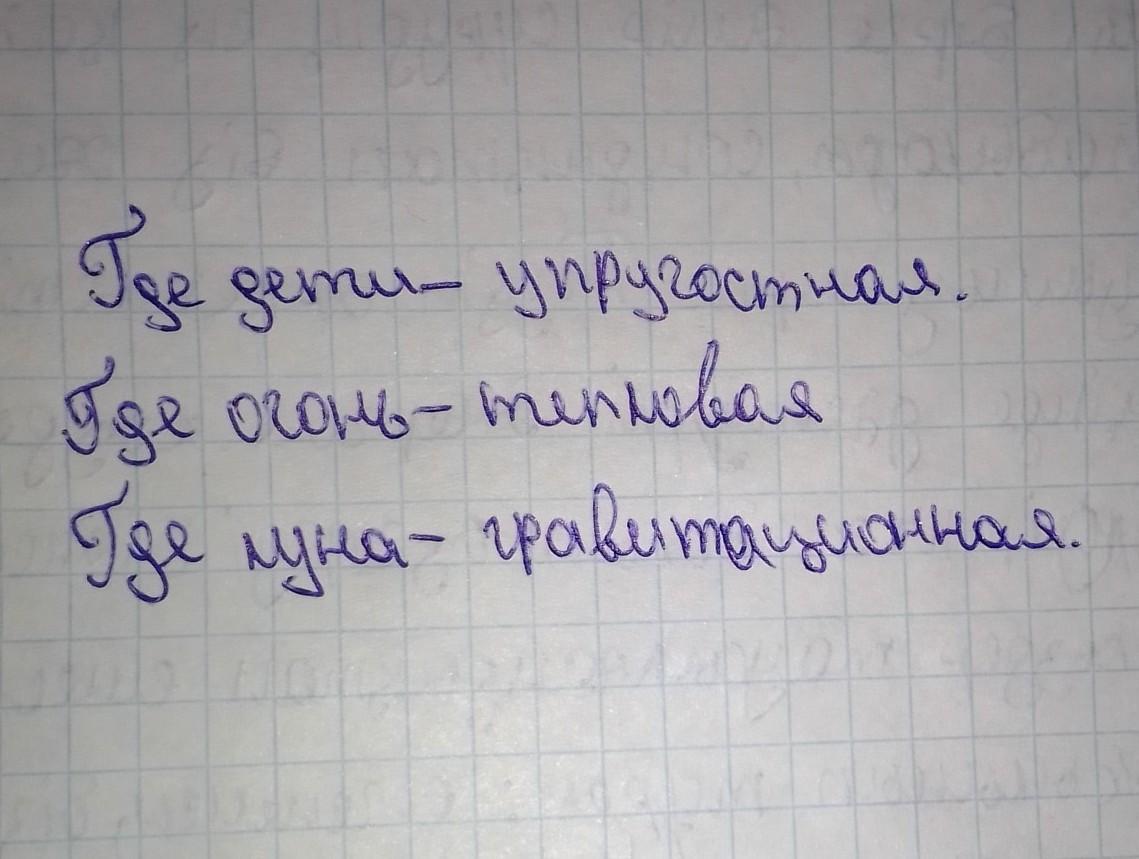 Где дети- упругостная.
Где огонь- тепловая
Где луна- гравитационная.